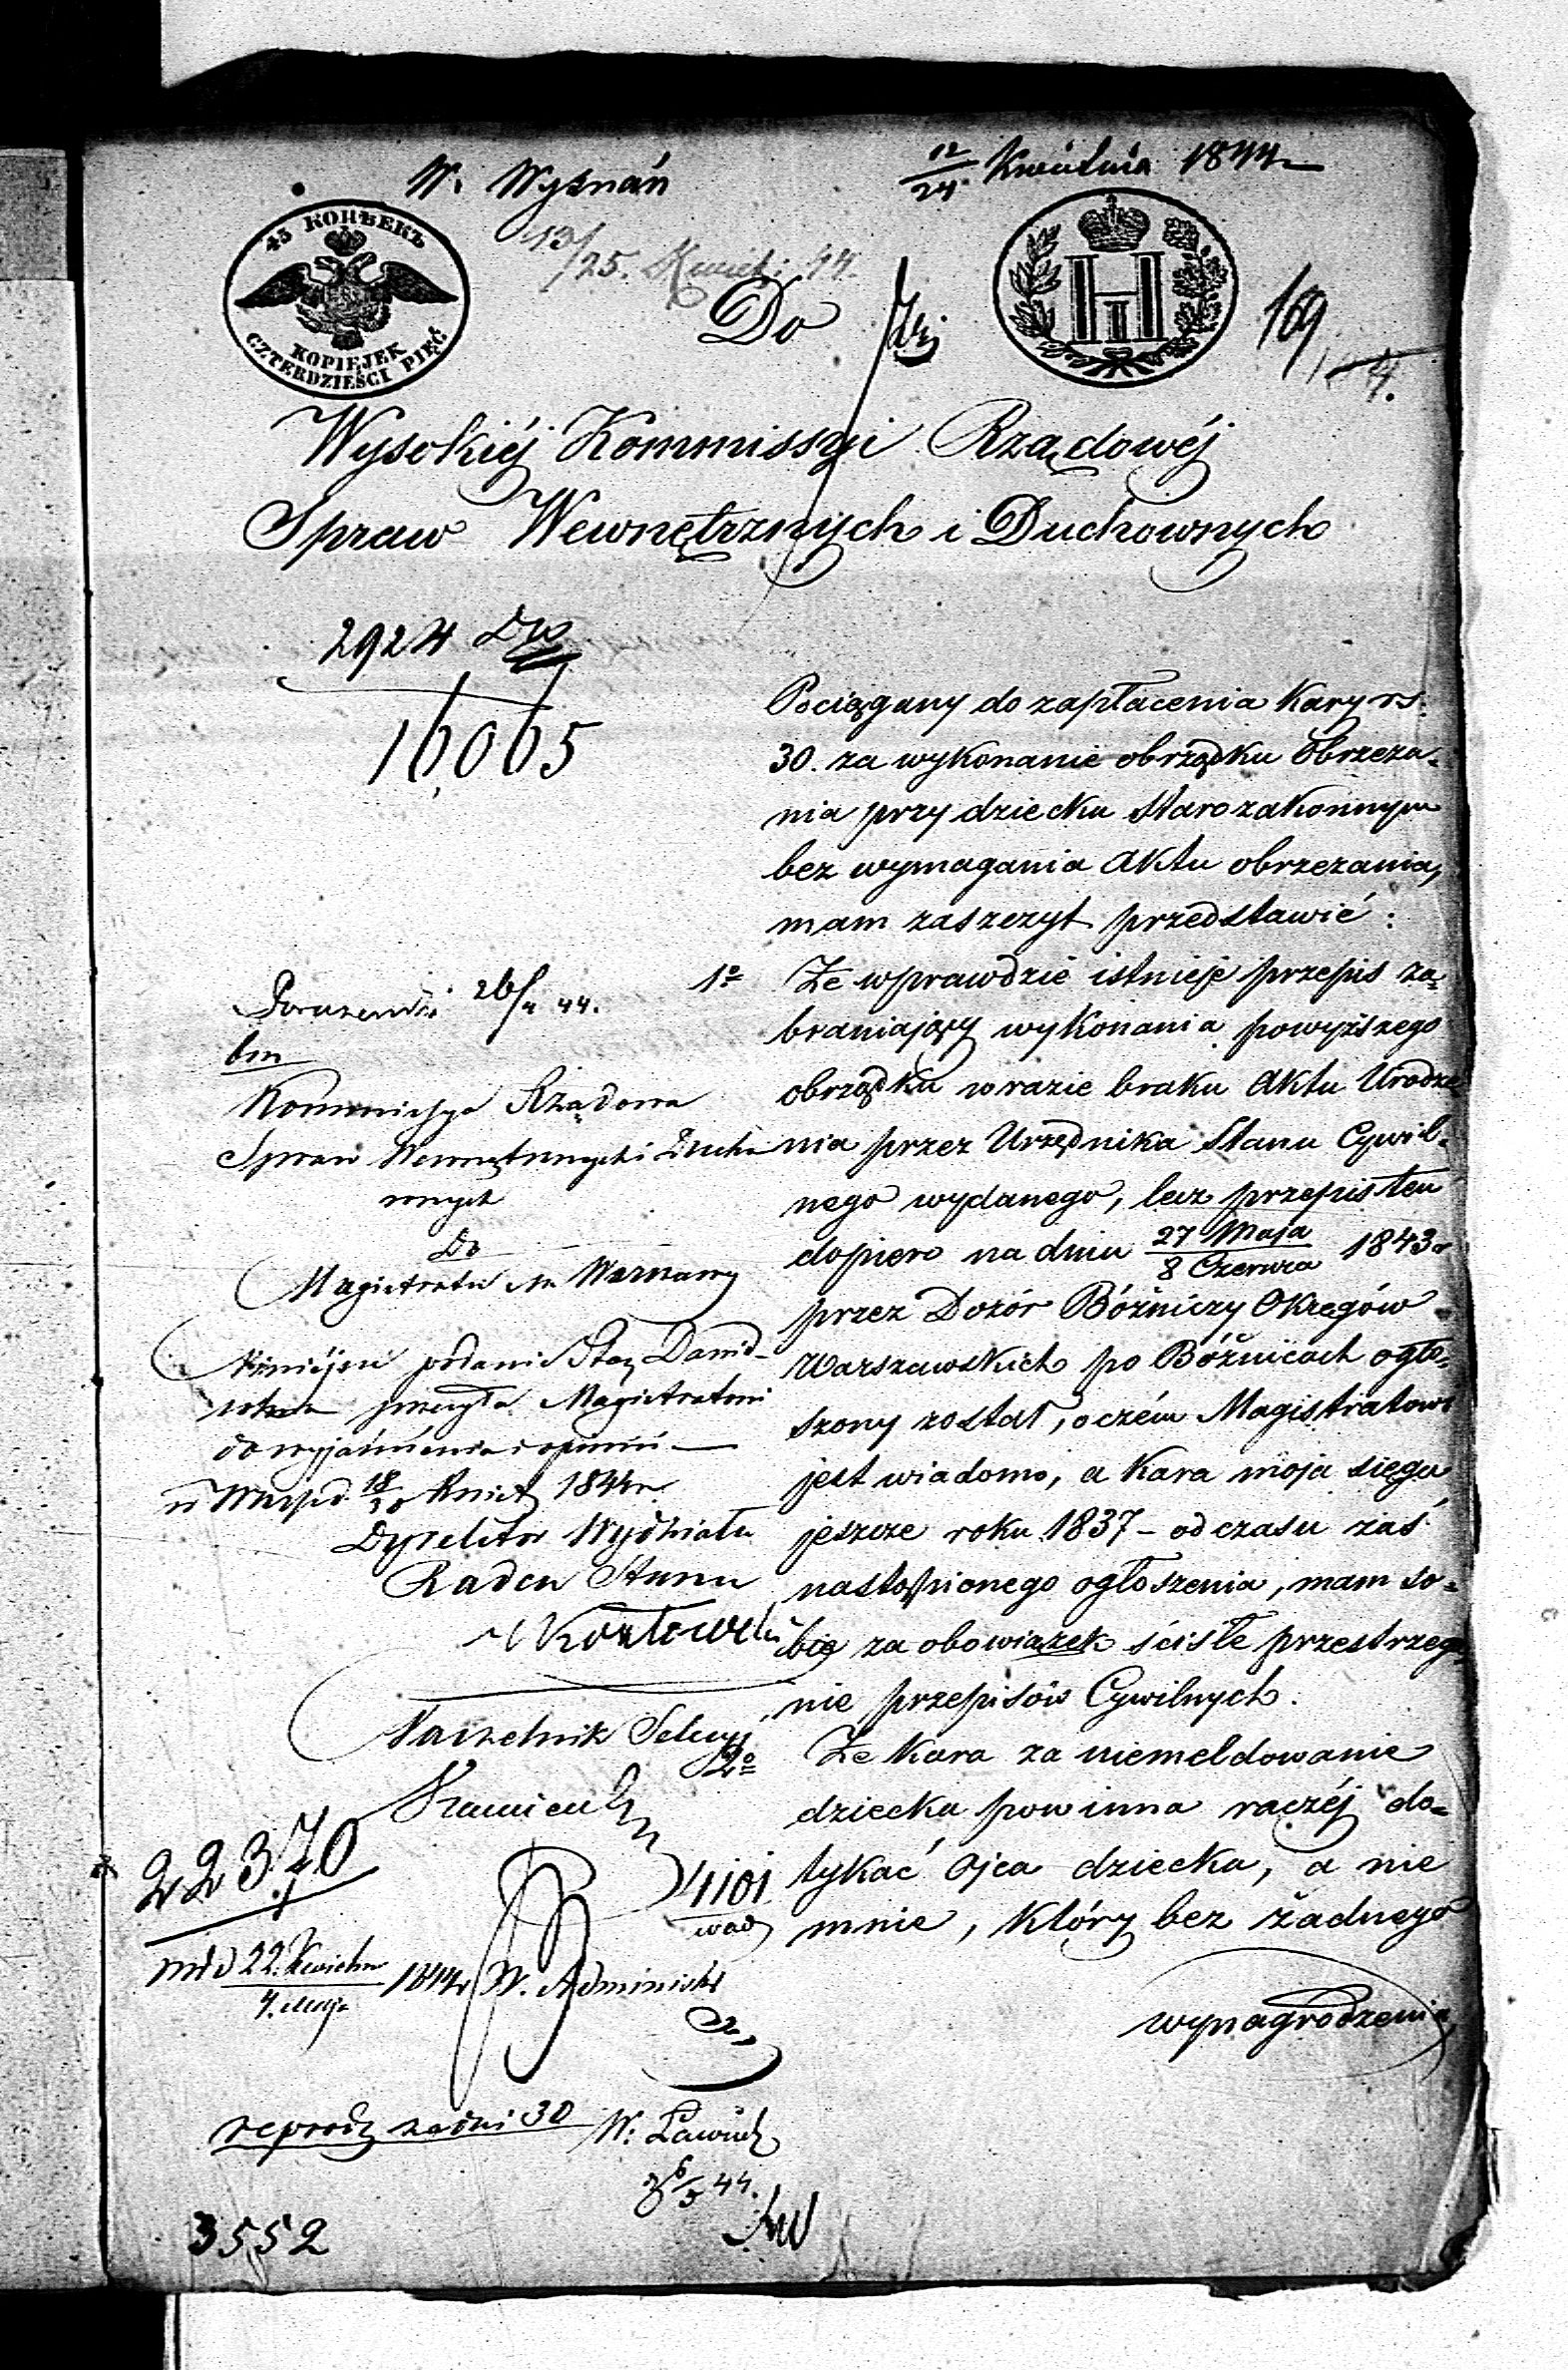 W. Wyznań
12/24 Kwietnia 1844
13/25. Kwiet: 44.
45 КОПѢЕКЪ
KOPIEJEK
CZTERDZIEŚCI PIĘĆ
Do
169
Wysokiéj Kommissyi Rządowéj
Spraw Wewnętrznych i Duchownych
2924
16065
Pociągany do zapłacenia Kary rs.
30. za wykonanie obrządku Obrzeza-
nia przy dziecku Starozakonnym
bez wymagania Aktu obrzezania,
mam zaszczyt przedstawić:
1º Że wprawdzie istnieje przepis za-
braniający wykonania powyższego
obrządku w razie braku Aktu Urodze
nia przez Urzędnika Stanu Cywil-
nego wydanego, lecz przepis ten
dopiero na dniu 27 Maja / 8 Czerwca 1843 r
przez Dozór Bóżniczy Okręgów
Warszawskich po Bóżnicach ogło-
szony został, o czém Magistratowi
jest wiadomo, a Kara moja sięga
jeszcze roku 1837 - od czasu zaś
nastąpionego ogłoszenia, mam so-
bie za obowiązek ściśle przestrzega
nie przepisów Cywilnych.
2º Że Kara za niemeldowanie
dziecka powinna raczéj do-
tykać Ojca dziecka, a nie
mnie, który bez żadnego
wynagrodzenia
26/4 44.
Kommissya Rządowa
Spraw Wewnętrznych i Ducho
wnych
Do
Magistratu M. Warszawy
Niniejsze podanie Staz. Dawid-
sohna przesyła Magistratowi
do wyjaśnienia i opinii
w Warsz. d. 18/30 Kwiet. 1844 r.
Dyrektor Wydziału
Radca Stanu
Kozłowski
Naczelnik Sekcyi
22370
4101
22. Kwietnia / 4. Maja 1844 W. Administr
30
6/5 44.
3552